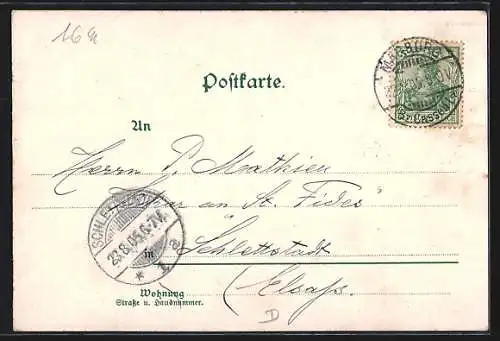 16 M
MARBURG
(Bz. CASSEL)
Postkarte.
An
Herrn P. Mathieu
an St. Fides
SCHLETTSTADT
23.8.05.6-7V.
* a
in Schlettstadt
(Elsass.
Wohnung
Straße u. Hausnummer.
D